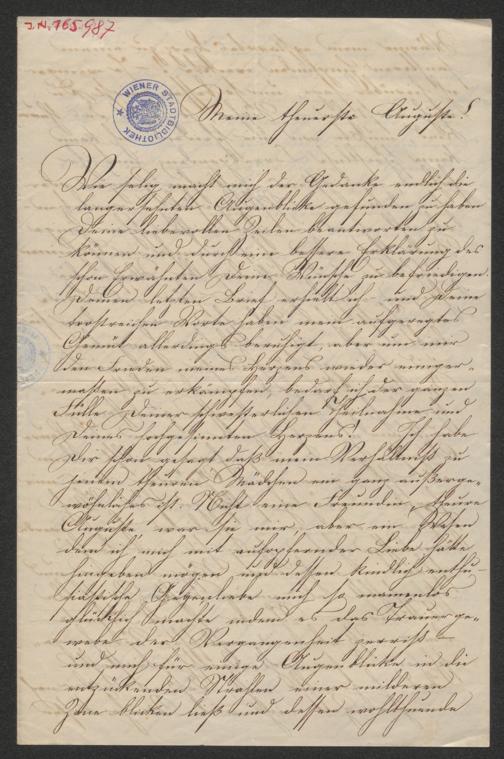 J.N. 165.987
WIENER STADTBIBLIOTHEK
Meine theuerste Auguste!
Wie selig macht mich der Gedanke endlich die
langersehnten Augenblicke gefunden zu haben
Deine liebevollen Zeilen beantworten zu
können und durch eine bessere Erklärung des
schon Erwähnten Deine Wünsche zu befriedigen.
Deinen letzten Brief erhielt ich und Deine
trostreichen Worte haben mein aufgeregtes
Gemüt allerdings beruhigt, aber um mir
den Frieden meines Herzens wieder einiger-
maßen zu erkämpfen, bedarf ich der ganzen
Fülle Deiner schwesterlichen Theilnahme und
Deines hochgesinnten Herzens! Ich habe
Dir schon gesagt daß mein Verhältniß zu
jenem theuren Mädchen ein ganz außerge-
wöhnliches ist. Nicht eine Freundin, theure
Auguste, war sie mir, aber ein Wesen
dem ich mich mit aufopfernder Liebe hätte
hingeben mögen und dessen kindlich enthu-
siastische Gegenliebe mich so namenlos
glücklich machte indem es das Trauerge-
webe der Vergangenheit zerriß –
und mich für einige Augenblicke in die
entzückenden Strahlen einer milderen
Zone blicken ließ und dessen wohlthuende